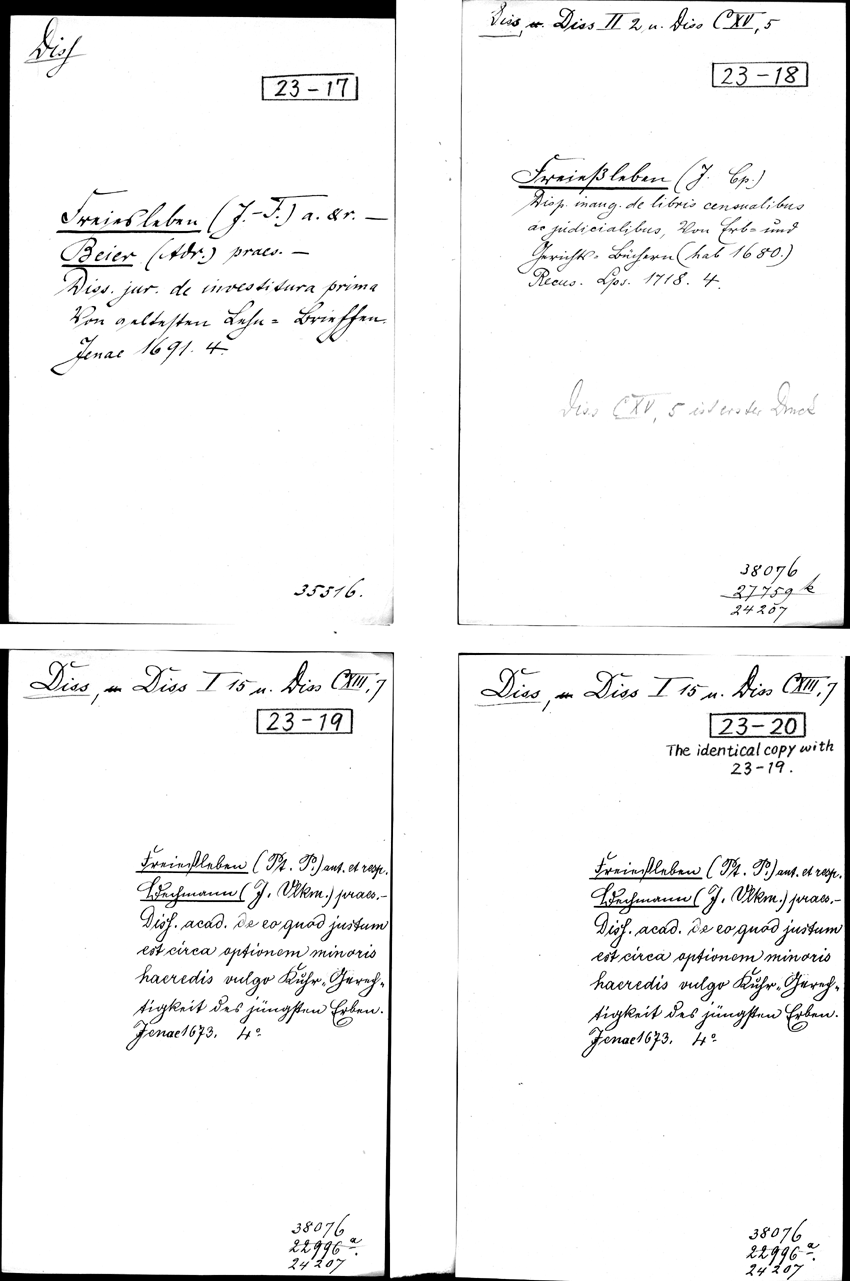 Diss
23-17
Freiesleben (J.-F.) a. &r. —
Beier (Adr.) praes. —
Diss. jur. de investitura prima
Von aeltesten Lehn= Brieffen.
Jenae 1691. 4.
35516.
Diss, u. Diss II 2 u. Diss CXV, 5
23-18
Freießleben (J. Cp.)
Disp. inaug. de libris censualibus
ac judicialibus, Von Erb= und
Gerichts= Büchern (hab 1680.)
Recus. Lps. 1718. 4.
Diss CXV, 5 ist erster Druck
38076
27759 k
24207
Diss, u. Diss I 15 u. Diss CXIII, 7
23-19
Freiesleben (Pt. P.) aut. et resp.
Bechmann (J. Vlkm.) praes.—
Diss. acad. de eo, quod justum
est circa optionem minoris
haeredis vulgo Kuhr-Gerech-
tigkeit des jüngsten Erben.
Jenae 1673. 4°
38076
22996 a.
24207
Diss, u. Diss I 15 u. Diss CXIII, 7
23-20
The identical copy with
23-19.
Freiesleben (Pt. P.) aut. et resp.
Bechmann (J. Vlkm.) praes.—
Diss. acad. de eo, quod justum
est circa optionem minoris
haeredis vulgo Kuhr-Gerech-
tigkeit des jüngsten Erben.
Jenae 1673. 4°
38076
22996 a.
24207